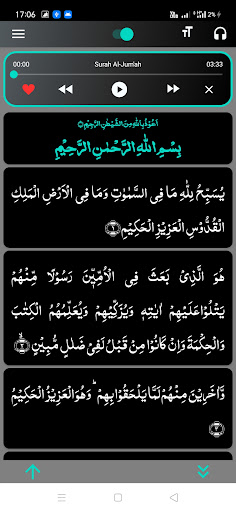 17:06
2%
00:00 Surah Al-Jumlah 03:33
اَعُوْذُ بِاللّٰهِ مِنَ الشَّيْطٰنِ الرَّجِيْمِ
بِسْمِ اللّٰهِ الرَّحْمٰنِ الرَّحِيْمِ
يُسَبِّحُ لِلّٰهِ مَا فِى السَّمٰوٰتِ وَمَا فِى الْاَرْضِ الْمَلِكِ
الْقُدُّوْسِ الْعَزِيْزِ الْحَكِيْمِ ﴿۱﴾
هُوَ الَّذِىْ بَعَثَ فِى الْاُمِّيّٖنَ رَسُوْلًا مِّنْهُمْ
يَتْلُوْا عَلَيْهِمْ اٰيٰتِهٖ وَيُزَكِّيْهِمْ وَيُعَلِّمُهُمُ الْكِتٰبَ
وَالْحِكْمَةَ وَاِنْ كَانُوْا مِنْ قَبْلُ لَفِىْ ضَلٰلٍ مُّبِيْنٍ ﴿۲﴾
وَّاٰخَرِيْنَ مِنْهُمْ لَمَّا يَلْحَقُوْا بِهِمْ ؕ وَهُوَ الْعَزِيْزُ الْحَكِيْمُ
﴿۳﴾